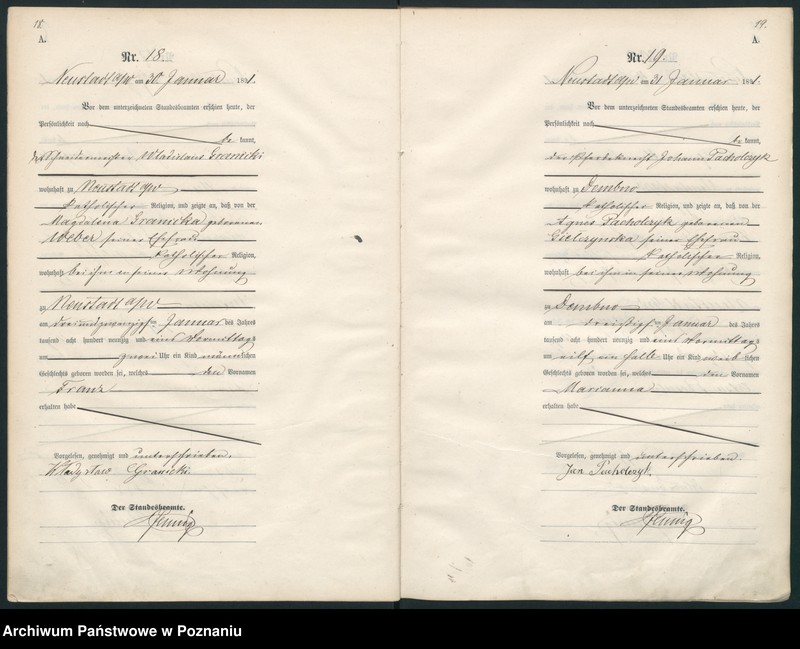 18.
A.
Nr. 18.
Neustadt a/W am 30. Januar 1881.
Vor dem unterzeichneten Standesbeamten erschien heute, der
Persönlichkeit nach
be kannt,
der Schneidermeister Wladislaus Granicki
wohnhaft zu Neustadt a/W
katholischer Religion, und zeigte an, daß von der
Magdalena Granicka geborenen
Weber seiner Ehefrau
katholischer Religion,
wohnhaft bei ihm in seiner Wohnung
zu Neustadt a/W
am Januar des Jahres
tausend acht hundert achtzig und eins Vormittags
um zwei Uhr ein Kind männlichen
Geschlechts geboren worden sei, welches den Vornamen
Franz
erhalten habe
Vorgelesen, genehmigt und unterschrieben.
Władysław Granicki.
Der Standesbeamte.
19.
A.
Nr. 19.
Neustadt a/W am 31 Januar 1881.
Vor dem unterzeichneten Standesbeamten erschien heute, der
Persönlichkeit nach
be kannt,
der Pferdeknecht Johann Pacholczyk
wohnhaft zu Dembno
katholischer Religion, und zeigte an, daß von der
Agnes Pacholczyk geborenen
seiner Ehefrau
katholischer Religion,
wohnhaft bei ihm in seiner Wohnung
zu Dembno
am dreißigsten Januar des Jahres
tausend acht hundert achtzig und eins Vormittags
um elf ein halb Uhr ein Kind weiblichen
Geschlechts geboren worden sei, welches den Vornamen
Marianna
erhalten habe
Vorgelesen, genehmigt und unterschrieben.
Jan Pacholczyk.
Der Standesbeamte.
Archiwum Państwowe w Poznaniu